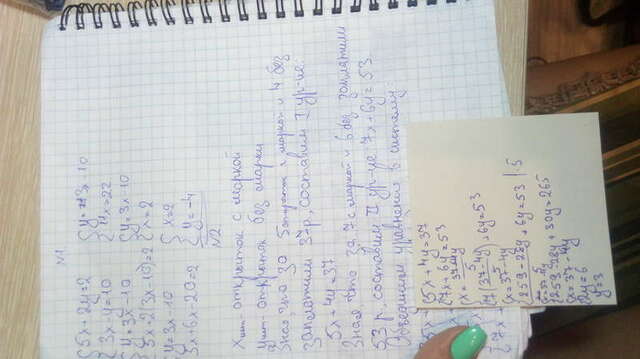 №1
{5x+2y=2
{3x-y=10
{y=3x-10
{5x+2(3x-10)=2
{y=3x-10
5x+6x-20=2
{y=3x-10
{11x=22
{y=3x-10
{x=2
{x=2
{y=-4
№2
x шт - открыток с маркой
y шт - открыток без марки
Зная что за 5 открыток с маркой и 4 без
заплатили 37р, составим I ур-ие:
5x+4y=37
Зная, что за 7 с маркой и 6 без заплатили
53 р, составим II ур-ие 7x+6y=53
Объединим уравнения в систему
{5x+4y=37
{7x+6y=53
{x=37-4y/5
{7(37-4y)/5+6y=53
{x=37-4y/5
{259-28y/5+6y=53 |·5
{x=37-4y/5
{259-28y+30y=265
{x=37-4y
{2y=6
y=3